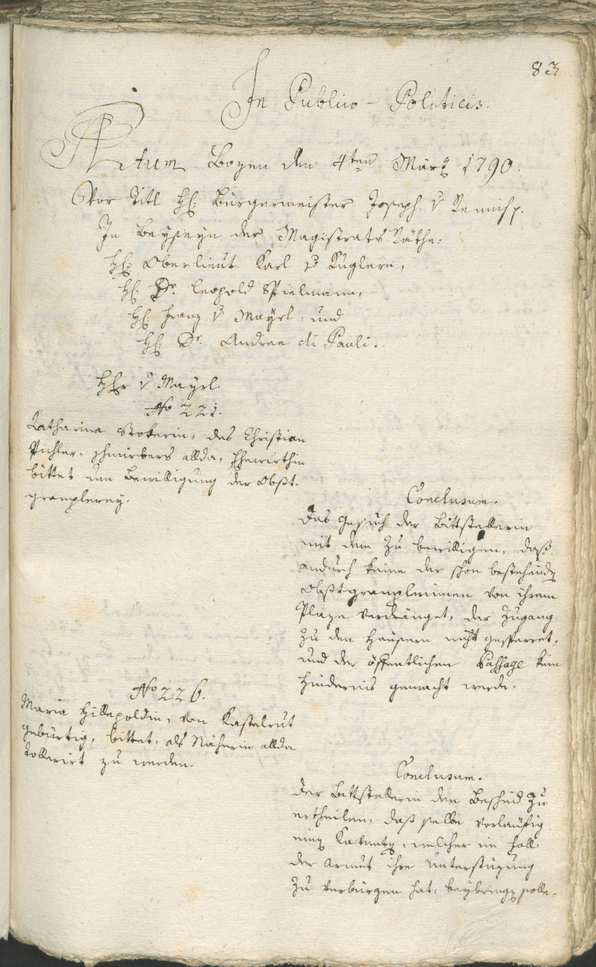 83
In Publico-Politicis.
Actum Bozen den 4ten März 1790.
Vor Titl HH Bürgermeister Joseph v
In Beyseyn der Magistrats Räthe:
HH. Oberlieut. Karl v Kuglern,
HH. Dr. Leopold Spielmann,
HH. Franz v Mayrl, und
HH. Dr. Andree di Pauli.
HHr v Mayrl.
No 221.
Katharina Stokerin, des Christian
Pichler, allda, Ehewirthin
bittet um Bewilligung der Obst-
gramplerey.
Conclusum.
Das Gesuch der Bittstellerin
mit dem zu bewilligen, daß
andurch keine der schon bestehenden
Obstgramplerinnen von ihrem
Plaze verdränget, der Zugang
zu den Häusern nicht gesperret,
und der öffentlichen Passage kein
Hinderniß gemacht werde.
No 226.
Maria Hillepoldin, von Kastelrut
gebürtig, bittet, als Näherin allda
tollerirt zu werden.
Conclusum.
Der Bittstellerin den Bescheid zu
ertheilen, daß selbe vorläufig
einen, welcher im Fall
der Armut ihre Unterstüzung
zu verbürgen hat, beybringen solle.